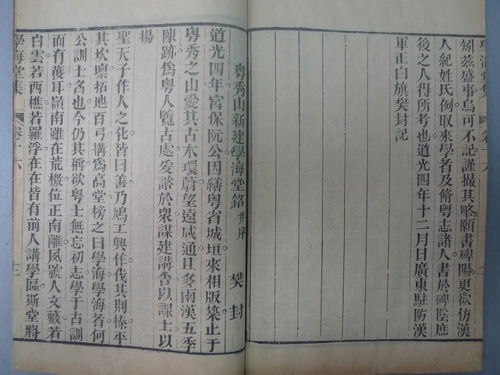 矧茲盛事烏可不記謹撮其略願書碑陽更欲仿漢
人紀姓氏例取來學者及脩粵志諸人書於碑陰庶
後之人得所考也道光四年十二月日廣東駐防漢
軍正白旗樊封記
粵秀山新建學海堂銘并序 樊封
道光四年宮保阮公因繕粵省城垣來相版築止于
粵秀之山愛其古木環蔚望遠咸通且多南漢五季
陳跡為粵人覽古處爰諮於衆謀建講舍以課士以
揚
聖天子作人之化皆曰善乃鳩工興作伐其荆榛平
其坎壈拓地百弓構為高堂榜之曰學海學海者何
公訓士名也今仍其稱欲粵士無忘初志學于古訓
而有獲耳嶺南雖在荒檄位正南離夙號人文藪若
白雲若西樵若羅浮在在皆有前人講學區斯堂將
學海堂集 卷十六